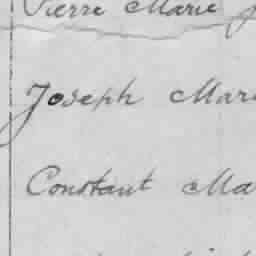 Pierre Marie
Joseph Mar
Constant Ma